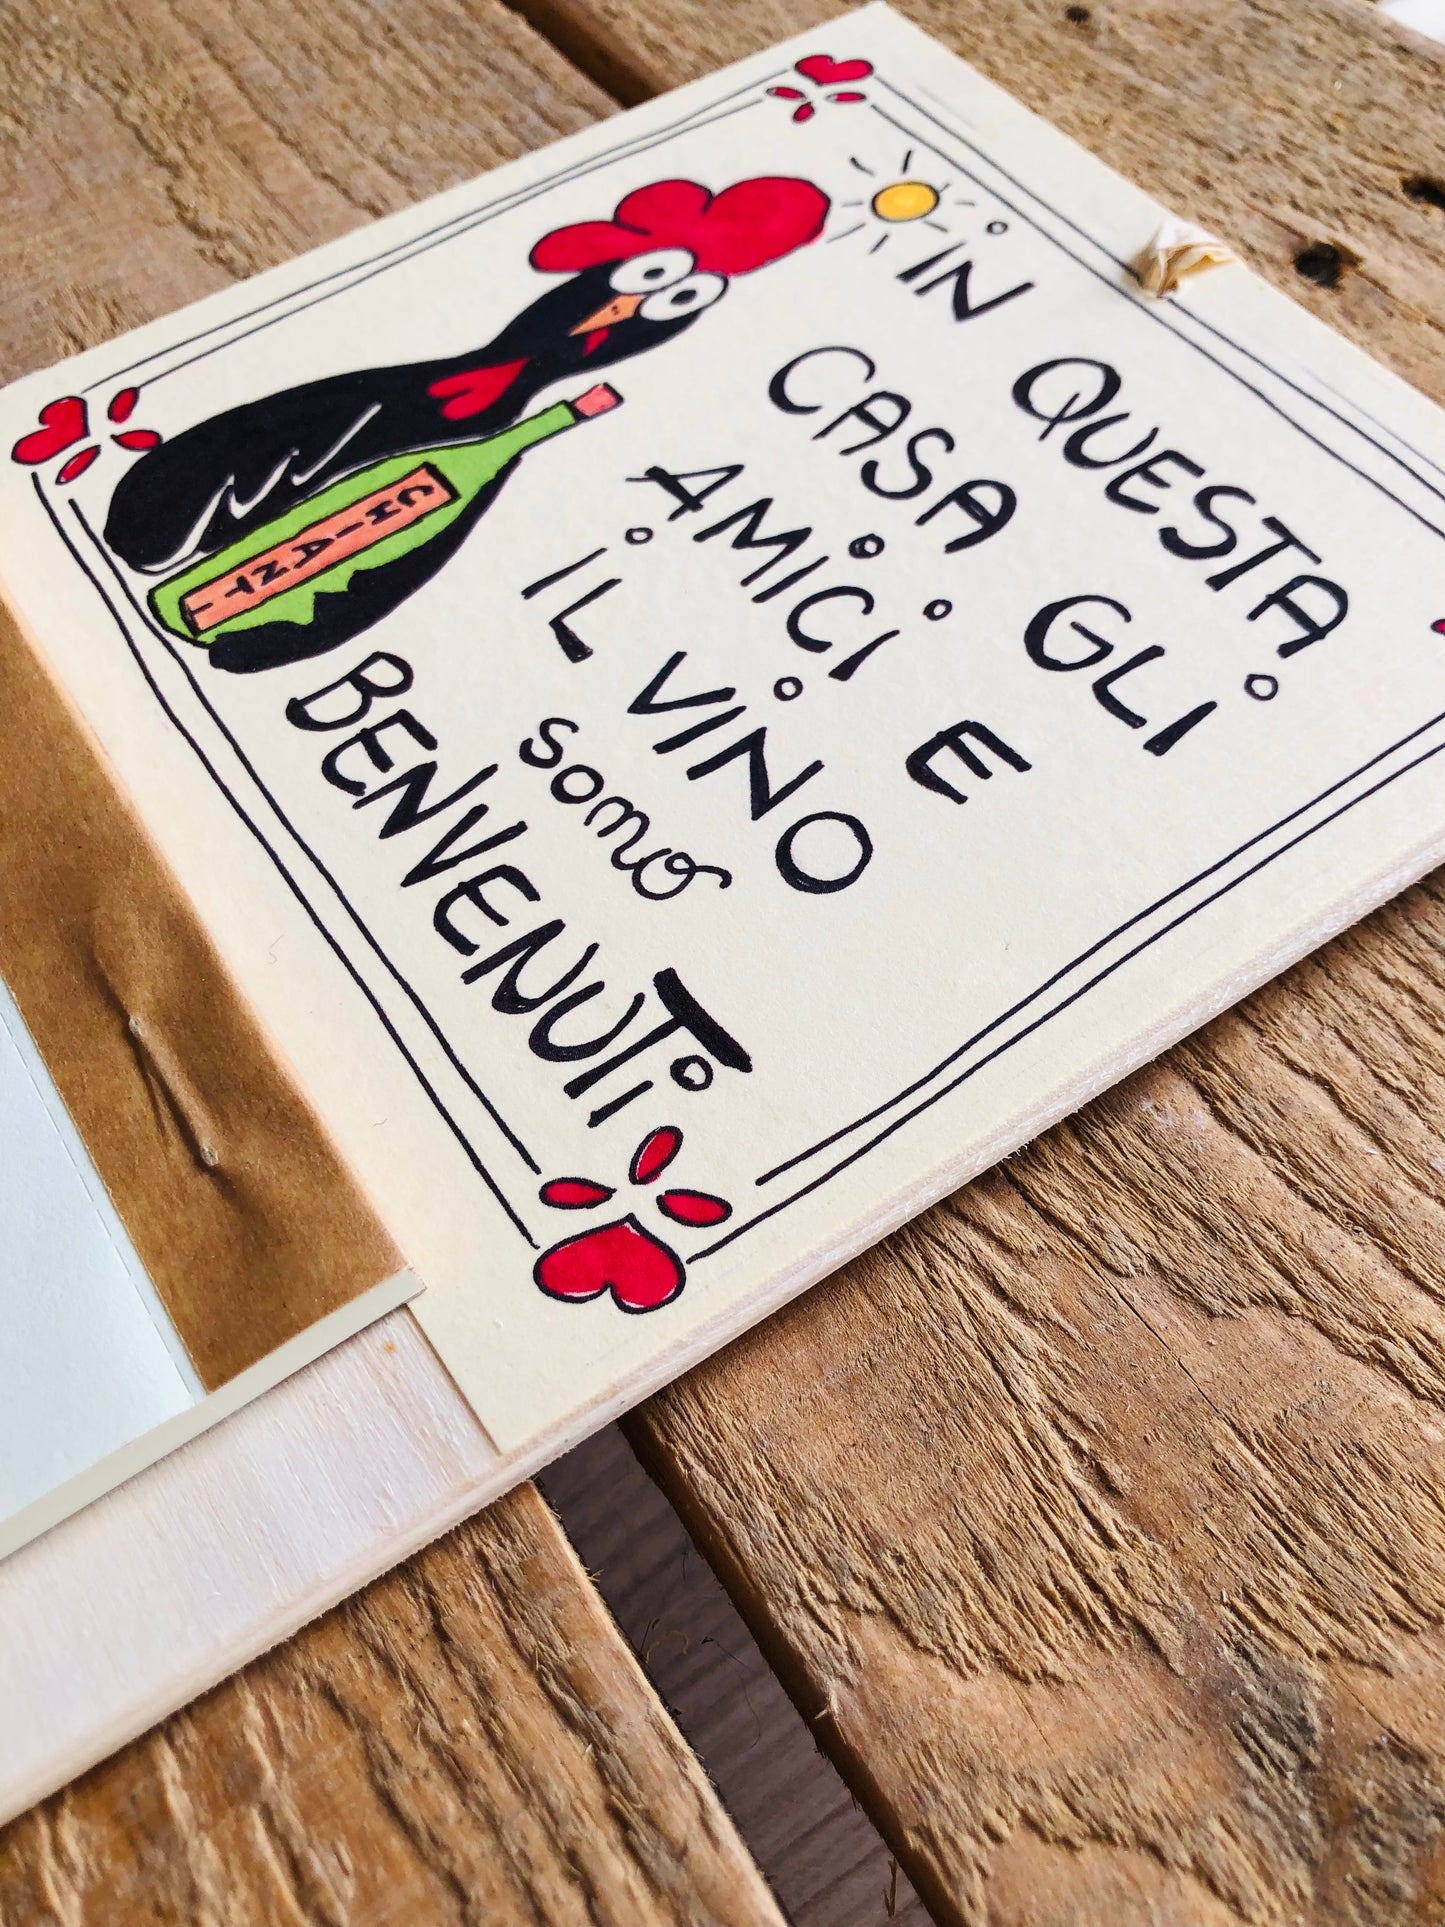 iN QUESTA
CASA GLi
AMiCi E
iL ViNO
somo
BENVENUTi
CHIANTI